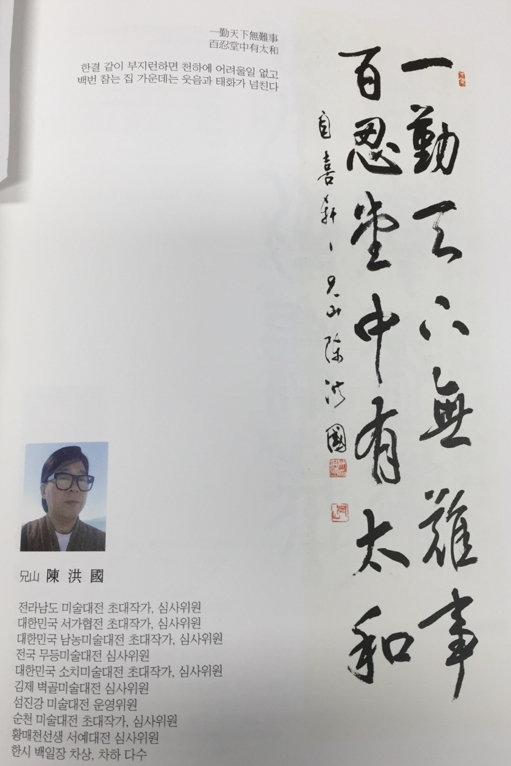 一勤天下無難事
百忍堂中有太和
한결 같이 부지런하면 천하에 어려울일 없고
백번 참는 집 가운데는 웃음과 태화가 넘친다
一勤天下無難事
百忍堂中有太和
自喜軒 兄山 陳洪國
兄山 陳洪國
전라남도 미술대전 초대작가, 심사위원
대한민국 서가협전 초대작가, 심사위원
대한민국 남농미술대전 초대작가, 심사위원
전국 무등미술대전 심사위원
대한민국 소치미술대전 초대작가, 심사위원
김제 벽골미술대전 심사위원
섬진강 미술대전 운영위원
순천 미술대전 초대작가, 심사위원
황매천선생 서예대전 심사위원
한시 백일장 차상, 차하 다수